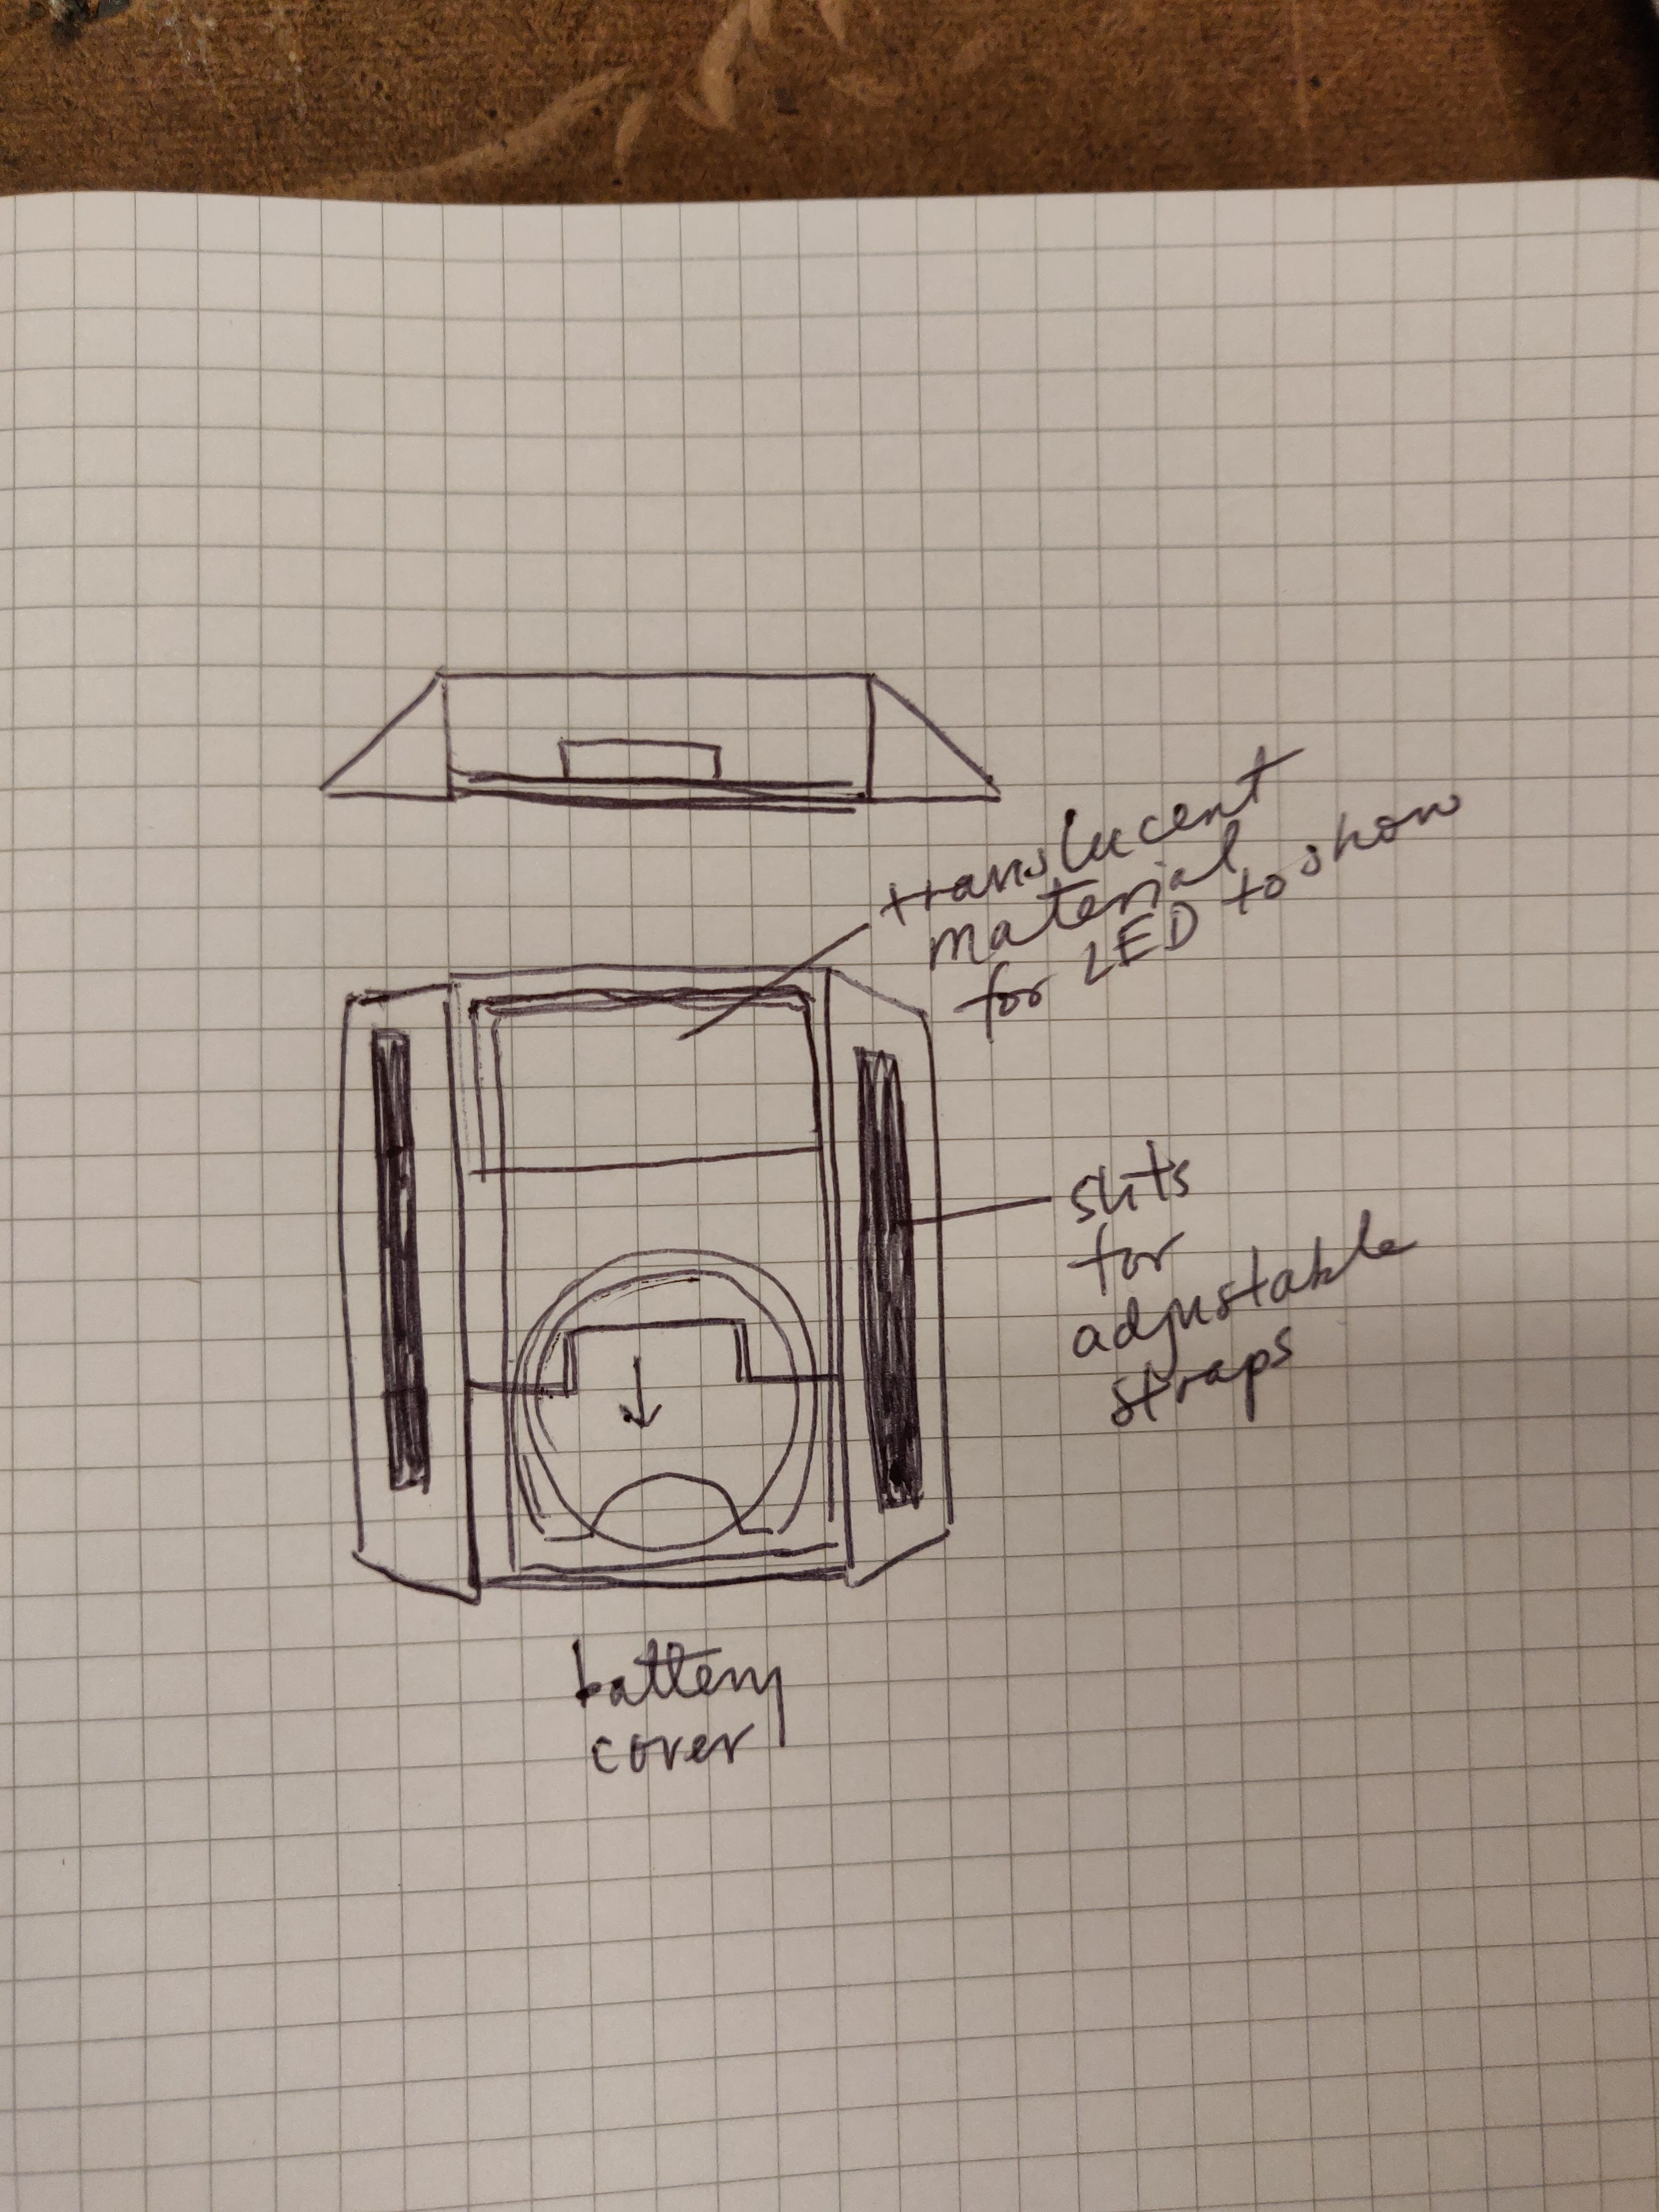 translucent
material
for LED to show
slits
for
adjustable
straps
battery
cover